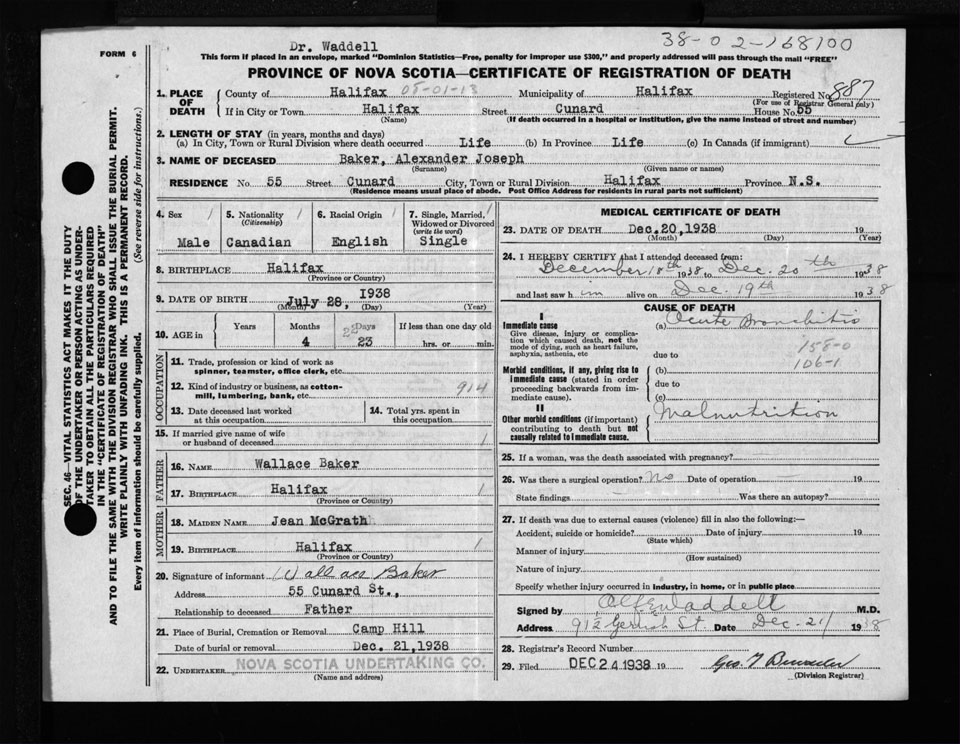 Dr. Waddell
38-02-168100
FORM 6
This form if placed in an envelope, marked "Dominion Statistics—Free, penalty for improper use $300," and properly addressed will pass through the mail "FREE"
PROVINCE OF NOVA SCOTIA—CERTIFICATE OF REGISTRATION OF DEATH
1. PLACE OF DEATH
County of Halifax 05-01-13 Municipality of Halifax Registered No. 887
(For use of Registrar General only)
If in City or Town Halifax Street Cunard House No. 55
(Name) (If death occurred in a hospital or institution, give the name instead of street and number)
2. LENGTH OF STAY (in years, months and days)
(a) In City, Town or Rural Division where death occurred Life (b) In Province Life (c) In Canada (if immigrant)
3. NAME OF DECEASED Baker, Alexander Joseph
(Surname) (Given name or names)
RESIDENCE No. 55 Street Cunard City, Town or Rural Division Halifax Province N.S.
(Residence means usual place of abode. Post Office Address for residents in rural parts not sufficient)
4. Sex Male
5. Nationality (Citizenship) Canadian
6. Racial Origin English
7. Single, Married, Widowed or Divorced (write the word) Single
8. BIRTHPLACE Halifax
(Province or Country)
9. DATE OF BIRTH July 28, 1938
(Month) (Day) (Year)
10. AGE in Years Months Days If less than one day old
4 23 hrs. or min.
11. Trade, profession or kind of work as spinner, teamster, office clerk, etc.
OCCUPATION
12. Kind of industry or business, as cotton-mill, lumbering, bank, etc. 914
13. Date deceased last worked at this occupation
14. Total yrs. spent in this occupation
15. If married give name of wife or husband of deceased
FATHER
16. NAME Wallace Baker
17. BIRTHPLACE Halifax
(Province or Country)
MOTHER
18. MAIDEN NAME Jean McGrath
19. BIRTHPLACE Halifax
(Province or Country)
20. Signature of informant Wallace Baker
Address 55 Cunard St.,
Relationship to deceased Father
21. Place of Burial, Cremation or Removal Camp Hill
Date of burial or removal Dec. 21, 1938
22. UNDERTAKER NOVA SCOTIA UNDERTAKING CO.
(Name and address)
MEDICAL CERTIFICATE OF DEATH
23. DATE OF DEATH Dec. 20, 1938 19
(Month) (Day) (Year)
24. I HEREBY CERTIFY that I attended deceased from:
December 18th 1938 to Dec. 20th 1938
and last saw him alive on Dec. 19th 1938
CAUSE OF DEATH
I
Immediate cause
Give disease, injury or complication which caused death, not the mode of dying, such as heart failure, asphyxia, asthenia, etc
(a) Acute Bronchitis
158-0
due to 106-1
Morbid conditions, if any, giving rise to immediate cause (stated in order proceeding backwards from immediate cause).
(b)
due to
(c)
II
Other morbid conditions (if important) contributing to death but not causally related to immediate cause.
Malnutrition
25. If a woman, was the death associated with pregnancy?
26. Was there a surgical operation? No Date of operation 19
State findings Was there an autopsy?
27. If death was due to external causes (violence) fill in also the following:—
Accident, suicide or homicide? Date of injury 19
(State which)
Manner of injury
(How sustained)
Nature of injury
Specify whether injury occurred in industry, in home, or in public place
Signed by Waddell M.D.
Address 912 Gerrish St. Date Dec-21/ 1938
28. Registrar's Record Number
29. Filed DEC 24 1938 19
(Division Registrar)
SEC. 46—VITAL STATISTICS ACT MAKES IT THE DUTY
OF THE UNDERTAKER OR PERSON ACTING AS UNDER-
TAKER TO OBTAIN ALL THE PARTICULARS REQUIRED
IN THE "CERTIFICATE OF REGISTRATION OF DEATH"
AND TO FILE THE SAME WITH THE DIVISION REGISTRAR WHO SHALL ISSUE THE BURIAL PERMIT.
WRITE PLAINLY WITH UNFADING INK. THIS IS A PERMANENT RECORD.
Every item of information should be carefully supplied. (See reverse side for instructions.)